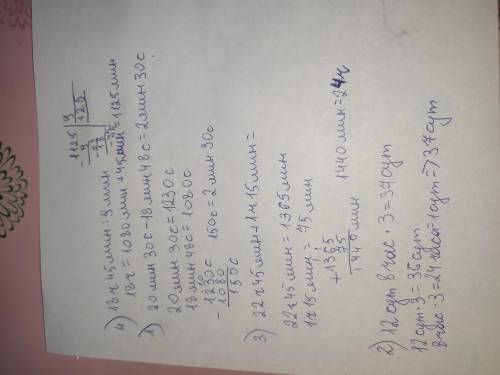 4) 18ч 45мин : 9мин
18ч = 1080мин + 45мин = 1125мин
1125 9
- 9 125
1) 20мин 30с - 18мин 48с = 2мин 30с
20мин 30с = 1230с
18мин 48с = 1080с
- 1230с 150с = 2мин 30с
1080
150с
3) 22ч 45мин + 1ч 15мин =
22ч 45мин = 1365мин
1ч 15мин = 75мин
+ 1365
75
1440мин 1440мин = 24ч
2) 12сут 8час · 3 = 37сут
12сут · 3 = 36сут
8час · 3 = 24часа = 1сут => 37сут